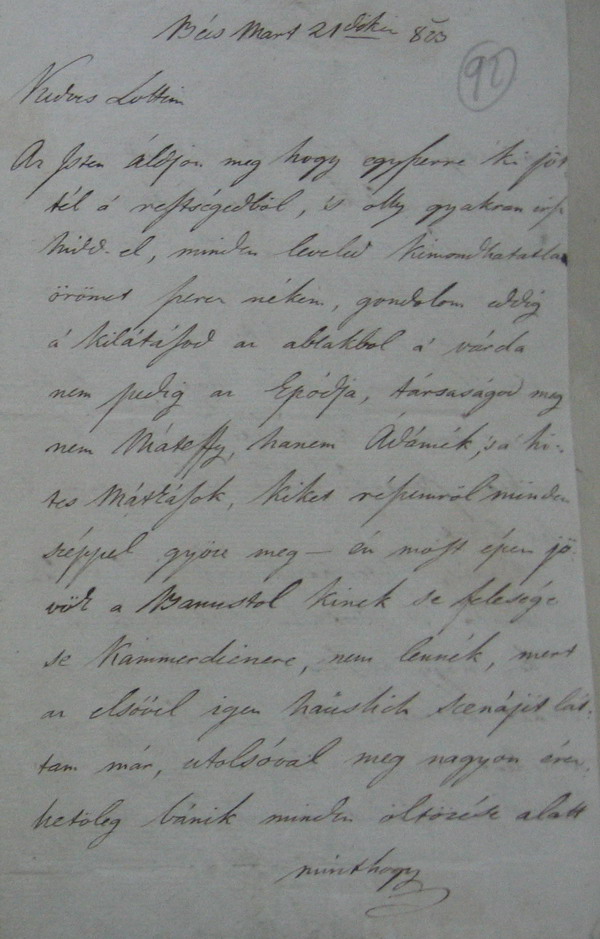 Bécs Mart 21dikén 823
92
Kedves Lottim
Az Isten áldjon meg hogy egyszerre ki jöt
tél á restségedböl, 's olly gyakran irsz
hidd-el, minden leveled kimondhatatla
örömet szerez nékem, gondolom eddig
á kilátásod az ablakbol á várda
nem pedig az, társaságod meg
nem Mátéffy, hanem Ádámék, 's á hi-
res Mátyások, kiket részemröl minden
széppel gyözz meg — én most épen jö
vök a Banustol kinek se felesége
se Kammerdienere, nem lennék, mert
az elsövel igen häuslich scenájit lát-
tam már, utolsóval meg nagyon érez
hetöleg bánik minden öltözése alatt
minthogy